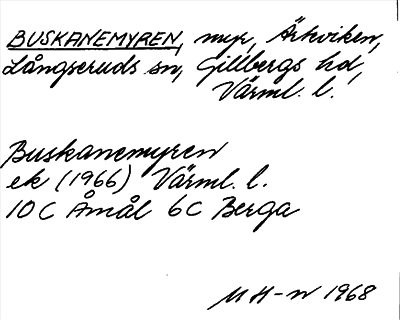 BUSKANEMYREN, myr, Ärkviken,
Långseruds sn, Gillbergs hd,
Värml. l.
Buskanemyren
ek (1966) Värml. l.
10 C Åmål 6C Berga
MH-n 1968